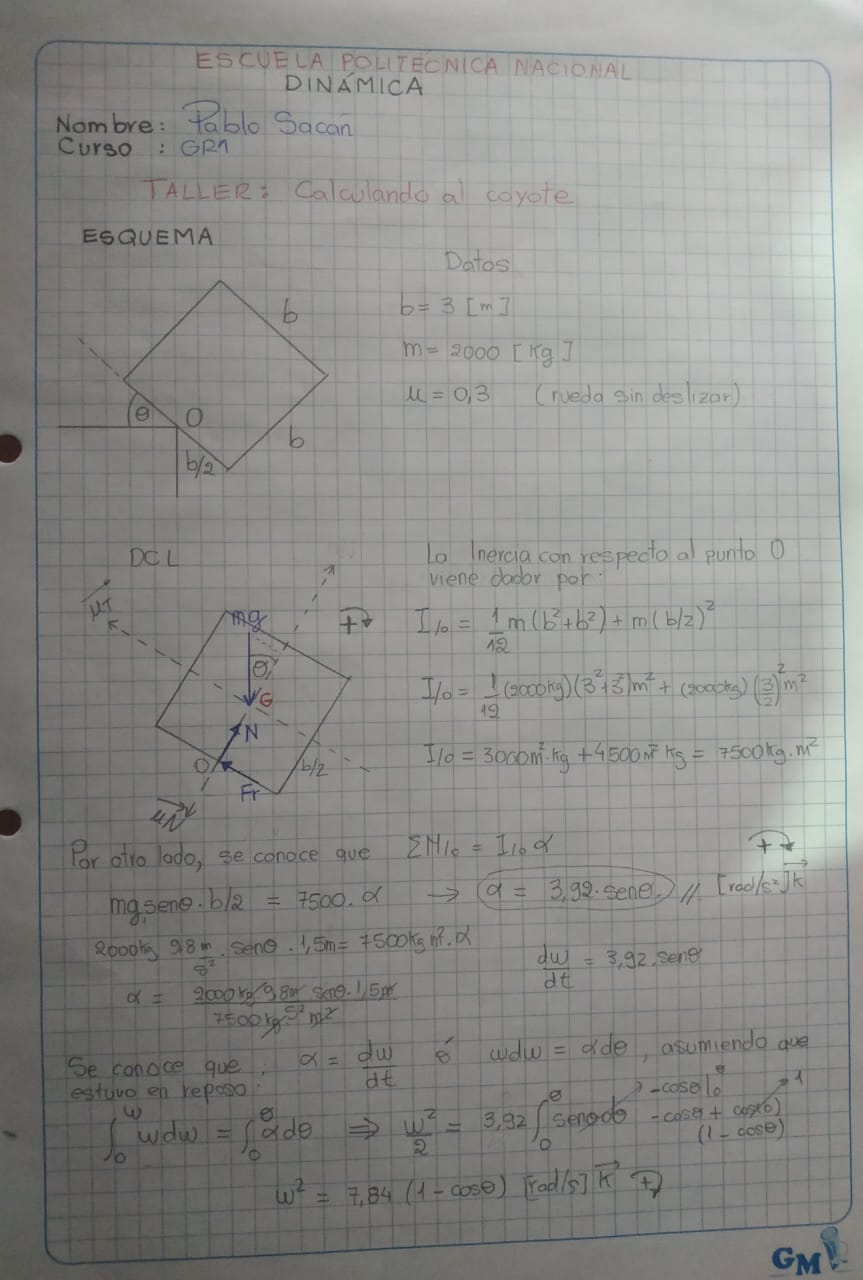 ESCUELA POLITÉCNICA NACIONAL
DINÁMICA
Nombre: Pablo Sacan
Curso : GR1
TALLER: Calculando al coyote
ESQUEMA
Datos
b = 3 [m]
m = 2000 [Kg]
μ = 0,3 (rueda sin deslizar)
b
θ O b
b/2
DCL
La Inercia con respecto al punto O
viene dador por:
I/o = 1/12 m(b²+b²) + m(b/2)²
I/o = 1/12 (2000kg)(3²+3²)m² + (2000kg)(3/2)² m²
I/o = 3000m²·kg + 4500m²kg = 7500kg·m²
mg
θ
G
N
O b/2
Fr
μN
Por otro lado, se conoce que ΣM/o = I/o α
mg.senθ.b/2 = 7500.α → α = 3,92.senθ // [rad/s²]k
2000kg 9,8 m/s² . senθ . 1,5m = 7500kg m².α
dω/dt = 3,92.senθ
α = 2000kg 9,8m senθ.1,5m / 7500kg s² m²
Se conoce que : α = dω/dt é ωdω = αdθ, asumiendo que
estuvo en reposo:
∫₀^ω ωdω = ∫₀^θ αdθ ⇒ ω²/2 = 3,92 ∫₀^θ senθdθ -cosθ|₀^θ
-cosθ + cos(0) 1
(1 - cosθ)
ω² = 7,84 (1-cosθ) [rad/s] k +
GM